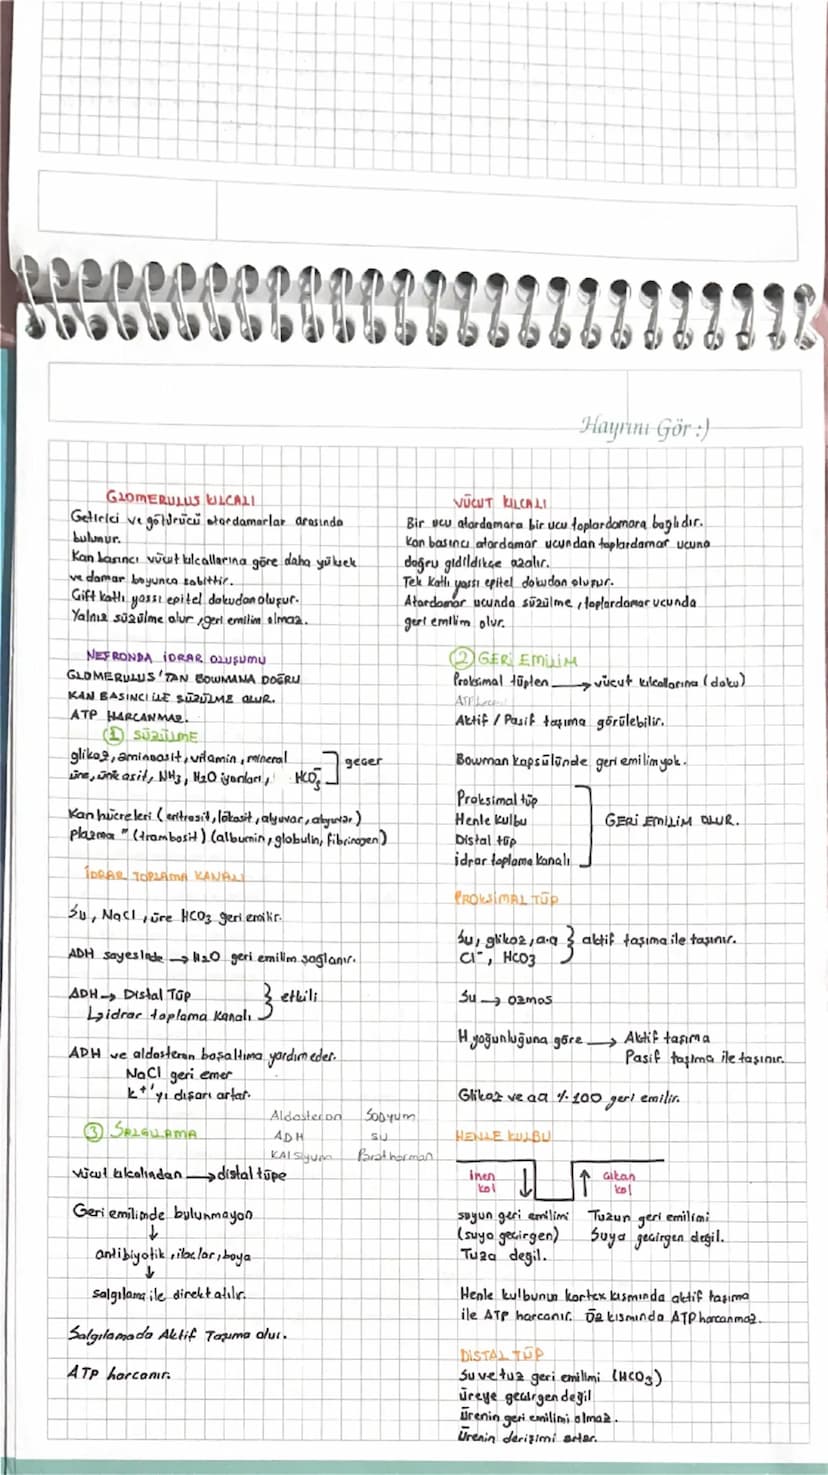 Hayrını Gör :)
GLOMERULUS KILCALI
Getirici ve götürücü atardamarlar arasında
bulunur.
Kan basıncı vücut kılcallarına göre daha yüksek
ve damar boyunca sabittir.
Çift katlı yassı epitel dokudan oluşur.
Yalnız süzülme olur, geri emilim olmaz.
NEFRONDA İDRAR OLUŞUMU
GLOMERULUS'TAN BOWMANA DOĞRU
KAN BASINCI İLE SÜZÜLME OLUR.
ATP HARCANMAZ.
① SÜZÜLME
glikoz, aminoasit, vitamin, mineral
üre, ürik asit, NH3, H2O iyonları, HCO3⁻ ] geçer
Kan hücreleri (eritrosit, lökosit, alyuvar, akyuvar)
plazma " (trombosit) (albumin, globulin, fibrinogen)
İDRAR TOPLAMA KANALI
Su, NaCl, üre HCO3 geri emilir.
ADH sayesinde → H2O geri emilim sağlanır.
ADH → Distal Tüp
↳ idrar toplama kanalı } etkili
ADH ve aldosteron boşaltıma yardım eder.
NaCl geri emer
K+'yı dışarı artar.
Aldosteron Sodyum
ADH su
Kalsiyum Parathorman
③ SALGILAMA
Vücut kılcalından → distal tüpe
Geri emilimde bulunmayan
↓
antibiyotik, ilaçlar, boya
↓
salgılama ile direkt atılır.
Salgılamada Aktif Taşıma olur.
ATP harcanır.
VÜCUT KILCALI
Bir ucu atardamara bir ucu toplardamara bağlıdır.
Kan basıncı atardamar ucundan toplardamar ucuna
doğru gidildikçe azalır.
Tek katlı yassı epitel dokudan oluşur.
Atardamar ucunda süzülme, toplardamar ucunda
geri emilim olur.
② GERİ EMİLİM
Proksimal tüpten → vücut kılcallarına (doku)
Aktif / Pasif taşıma görülebilir.
Bowman kapsülünde geri emilim yok.
Proksimal tüp
Henle kulbu
Distal tüp
idrar toplama kanalı ] GERİ EMİLİM OLUR.
PROKSİMAL TÜP
Su, glikoz, a.a } aktif taşıma ile taşınır.
Cl⁻, HCO3
Su → ozmos
H yoğunluğuna göre → Aktif taşıma
Pasif taşıma ile taşınır.
Glikoz ve aa %100 geri emilir.
HENLE KULBU
İnen kol ↓ ↑ Çıkan kol
suyun geri emilimi Tuzun geri emilimi
(suya geçirgen) Suya geçirgen değil.
Tuza değil.
Henle kulbunun korteks kısmında aktif taşıma
ile ATP harcanır. Öz kısmında ATP harcanmaz.
DİSTAL TÜP
Su ve tuz geri emilimi (HCO3)
üreye geçirgen değil
Ürenin geri emilimi olmaz.
Ürenin derişimi artar.